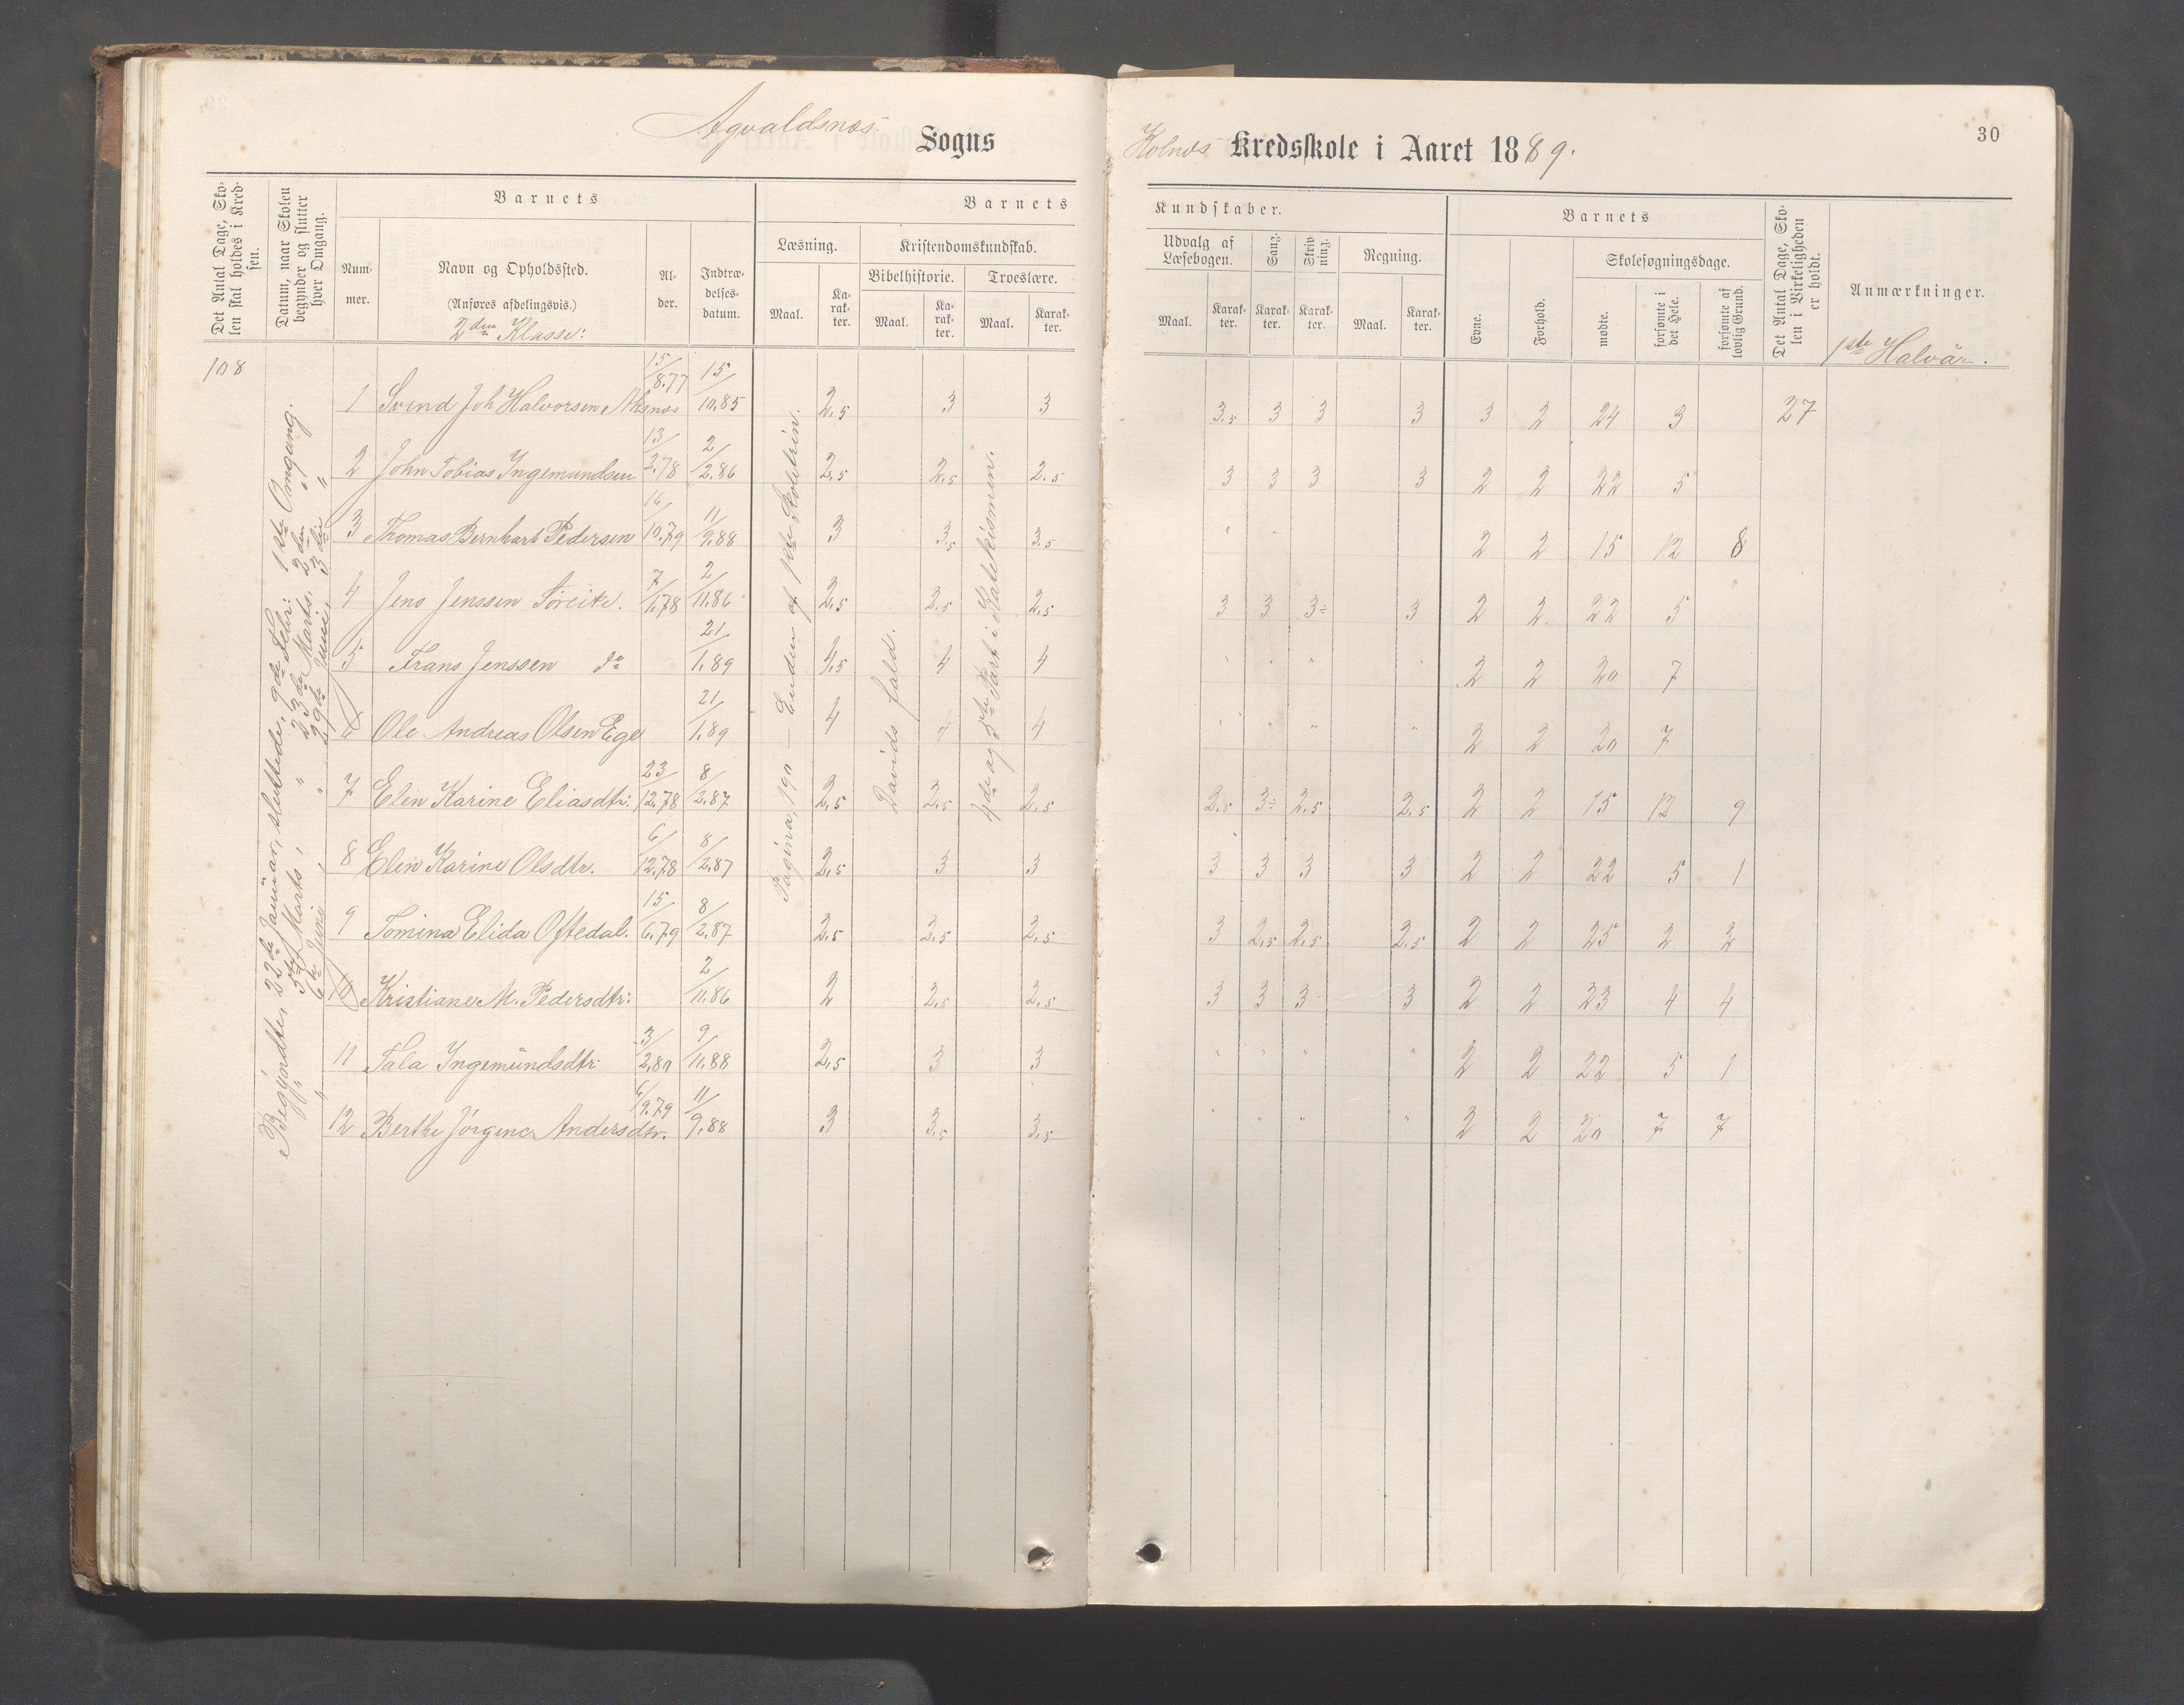 Agvaldsnæs Sogns
Kolnæs Kredsskole i Aaret 1889.
30
Det Antal Dage, Skolen skal holdes i Kredsen.
Datum, naar Skolen begynder og slutter hver Omgang.
Barnets
Nummer.
Navn og Opholdssted.
(Anføres afdelingsvis.)
2den Klasse:
Alder.
Indtrædelsesdatum.
Barnets
Læsning.
Maal.
Karakter.
Kristendomskundskab.
Bibelhistorie.
Maal.
Karakter.
Troeslære.
Maal.
Karakter.
Kundskaber.
Udvalg af Læsebogen.
Maal.
Karakter.
Sang.
Karakter.
Skrivning.
Karakter.
Regning.
Maal.
Karakter.
Barnets
Evne.
Forhold.
Skolesøgningsdage.
mødte.
forsømte i det Hele.
forsømte af lovlig Grund.
Det Antal Dage, Skolen i Virkeligheden er holdt.
Anmærkninger.
1ste Halvår.
108
Begyndte, 22de Januar, sluttede, 9de Febr: 1ste Omgang.
" 5te Marts, " 23de Marts, 2den "
" 6te Juni, " 29de Juni, 3die "
Pagina, 190 — Enden af 1ste Skoletrin.
Davids fald.
4de og 5te Part i Katekismen.
1 Svend Joh Halvorsen Aksnæs 15/8.77 15/10.85 2,5 3 3 3.5 3 3 3 3 2 24 3 27
2 John Tobias Ingemundsen 13/2.78 2/2.86 2,5 2,5 2.5 3 3 3 3 2 2 22 5
3 Thomas Bernhart Pedersen 16/10.79 11/9.88 3 3.5 3.5 " " 2 2 15 12 8
4 Jens Jenssen Føreite. 7/1.78 2/11.86 2,5 2,5 2,5 3 3 3÷ 3 2 2 22 5
5 Frans Jenssen do 21/1.89 4,5 4 4 " " " " 2 2 20 7
6 Ole Andreas Olsen Ege 21/1.89 4 4 4 " " " " 2 2 20 7
7 Elen Karine Eliasdtr: 23/12.78 8/2.87 2,5 2,5 2,5 2,5 3÷ 2,5 2,5 2 2 15 12 9
8 Elen Karine Olsdtr. 6/12.78 8/2.87 2,5 3 3 3 3 3 3 2 2 22 5 1
9 Tomina Elida Oftedal. 15/6.79 8/2.87 2,5 2,5 2,5 3 2,5 2,5 2,5 2 2 25 2 2
10 Kristiane M. Pedersdtr: 2/11.86 2 2,5 2,5 3 3 3 3 2 2 23 4 4
11 Tala Ingemundsdtr 3/2.80 9/11.88 2,5 3 3 " " " " 2 2 22 5 1
12 Berthe Jørgine Andersdtr. 6/9.79 11/9.88 3 3,5 3,5 " " " " 2 2 20 7 7